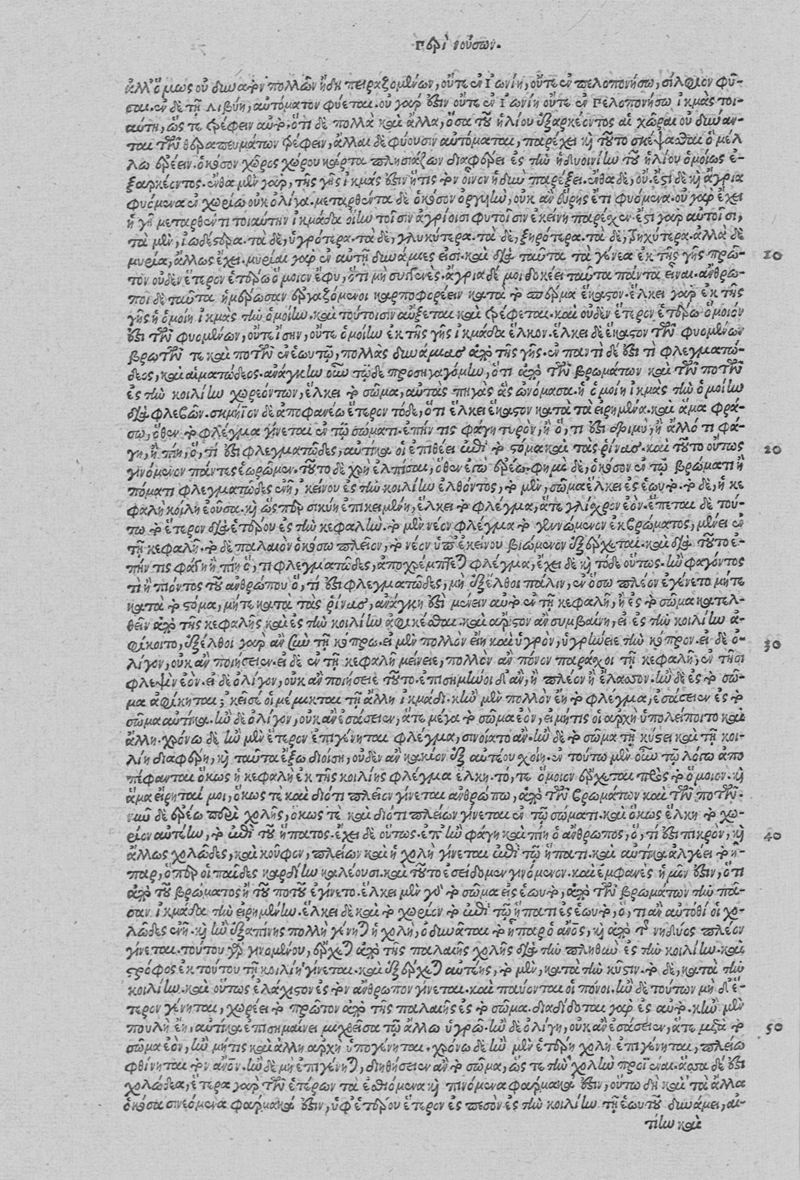 Περὶ νούσων.
ἀλλ' ὅμως οὐ δυνατὸν πολλῶν ἤδη πειραζομένων, οὔτε ἐν Ἰωνίῃ, οὔτε ἐν πελοπονήσω, σίλφιον φῦ-
σαι. ἐν δὲ τῇ λιβύῃ, αὐτόματον φύεται. οὐ γάρ ἐστιν οὔτε ἐν Ἰωνίῃ οὔτε ἐν Πελοπονήσω ἰκμὰς τοι-
αύτη, ὥς τε τρέφειν αὐτὸ. ὅτι δὲ πολλὰ καὶ ἄλλα, ὅσα τοῦ ἡλίου ἐξαρκέοντος αἱ χῶραι οὐ δύναν-
ται τῶν θεραπευμάτων τρέφειν, ἄλλαι δὲ φύουσιν αὐτόματα, παρέχει καὶ τοῦτο σκέψασθαι ὃ μέλ
λω ἐρέειν. ὁκόσον χῶρος χώρου κάρτα πλησιάζων διαφέρει ἐς τὴν ἡδυοινίην τοῦ ἡλίου ὁμοίως ἐ-
ξαρκέοντος. ἔνθα μὲν γὰρ, τῆς γῆς ἰκμάς ἐστιν ἥτις τὸν οἶνον ἡδὺν παρέξει. ἔνθα δὲ, οὔ. ἔστι δὲ καὶ ἄγρια
φυόμενα ἐν χωρίῳ οὐκ ὀλίγα. μεταρθέντα δὲ ὁκόσον ὀργυὴν, οὐκ ἂν εὕρῃς ἔτι φυόμενα. οὐ γὰρ ἔχει
ἡ γῆ μεταρθέντι τοιαύτην ἰκμάδα οἵην τοῖσιν ἀγρίοισι φυτοῖσιν ἐκείνη παρέχεν. ἔστι γὰρ αὐτοῖσι,
τὰ μὲν, ἰωδέστερα. τὰ δὲ, ὑγρότερα. τὰ δὲ, γλυκύτερα. τὰ δὲ, ξηρότερα. τὰ δὲ, τρηχύτερα. ἀλλὰ δὲ
μυρία, ἄλλως ἔχει. μυρίαι γὰρ ἐν αὐτῇ δυνάμιές εἰσι. καὶ διὰ ταῦτα τὰ γένεα ἐκ τῆς γῆς πρῶ-
τον οὐδὲν ἕτερον ἑτέρω ὅμοιον ἔφυ, ὅτι μὴ συγγενές. ἄγρια δέ μοι δοκέει ταῦτα πάντα εἶναι. ἄνθρω-
ποι δὲ ταῦτα ἡμέρωσαν ἐργαζόμενοι καρποφορέειν κατὰ τὸ σπέρμα ἕκαστον. ἕλκει γὰρ ἐκ τῆς
γῆς ἡ ὁμοίη ἰκμὰς τὴν ὁμοίην. καὶ τούτοισιν αὔξεται καὶ τρέφεται. καὶ οὐδὲν ἕτερον ἑτέρω ὅμοιόν
ἐστι τῶν φυομένων, οὔτε ἴσην, οὔτε ὁμοίην ἐκ τῆς γῆς ἰκμάδα ἕλκον. ἕλκει δὲ ἕκαστον τῶν φυομένων
βρωτῶν τε καὶ ποτῶν ἐν ἑωυτῷ, πολλὰς δυνάμιας ἀπὸ τῆς γῆς. ἐν παντὶ δέ ἐστι τι φλεγματώ-
δεος, καὶ αἱματώδεος. ἀνάγκην οὖν τῷδε προσηγαγόμην, ὅτι ἀπὸ τῶν βρωμάτων καὶ τῶν ποτῶν
ἐς τὴν κοιλίην χωρεόντων, ἕλκει τὸ σῶμα, αὐτὰς πηγὰς ἃς ὠνόμασα. ἡ ὁμοίη ἰκμὰς τὴν ὁμοίην
διὰ φλεβῶν. σημήϊον δὲ ἀποφανέω ἕτερον τόδε, ὅτι ἕλκει ἕκαστον κατὰ τὰ εἰρημένα. καὶ ἅμα φρά-
σω, ὅθεν τὸ φλέγμα γίνεται ἐν τῷ σώματι. ἐπήν τις φάγῃ τυρὸν, ἢ ὅ, τι ἐστὶ δριμὺ, ἢ ἄλλό τι φά-
γῃ, ἢ πίῃ, ὅ, τι ἐστι φλεγματῶδες, αὐτίκα οἱ ἐπιθέει ἐπὶ τὸ στόμα καὶ τὰς ῥίνας. καὶ τοῦτο οὕτως
γινόμενον πάντες ἑωρῶμεν. τοῦτο δὲ χρὴ ἐλπίσαι, ὅθεν ἐγὼ ἐρέω. φημὶ δὲ, ὁκόσον ἐν τῷ βρώματι ἢ
πόματι φλεγματῶδες ἐνῇ, ἐκείνου ἐς τὴν κοιλίην ἐλθόντος, τὸ μὲν, σῶμα ἕλκει ἐς ἑωυτό. τὸ δὲ, ἡ κε
φαλὴ κοίλη ἐοῦσα. καὶ ὥσπερ σικύη ἐπικειμένη, ἕλκει τὸ φλέγμα, ἅτε γλίχρον ἐόν. ἕπεται δὲ τού-
τω τὸ ἕτερον διὰ ἑτέρου ἐς τὴν κεφαλήν. τὸ μὲν νέον φλέγμα τὸ γεννώμενον ἐκ βρώματος, μένει ἐν
τῇ κεφαλῇ. τὸ δὲ παλαιὸν ὁκόσω πλεῖον, τὸ νέον ὑπ' ἐκείνου βιώμενον ἐξέρχεται. καὶ διὰ τοῦτο ἐ-
πήν τις φάγῃ ἢ πίῃ ὅ, τι φλεγματῶδες, ἀποχρέμπτεται φλέγμα, ἔχει δὲ καὶ τόδε οὕτως. ἢν φαγόντος
τὶ ἢ πιόντος τοῦ ἀνθρώπου ὅ, τι ἐστι φλεγματῶδες, μὴ ἐξέλθοι πάλιν, ἐν ὅσω πλέον ἐγένετο μήτε
κατὰ τὸ στόμα, μήτε κατὰ τὰς ῥίνας, ἀνάγκη ἐστὶ μένειν αὐτὸ ἐν τῇ κεφαλῇ, ἢ ἐς τὸ σῶμα κατελ-
θεῖν ἀπὸ τῆς κεφαλῆς καὶ ἐς τὴν κοιλίην ἀφικέσθαι. καὶ ἄριστον ἂν συμβαίνῃ, εἰ ἐς τὴν κοιλίην ἀ-
φίκοιτο, ἐξέλθοι γὰρ ἂν ξὺν τῇ κόπρῳ. εἰ μὲν πολλὸν εἴη καὶ ὑγρὸν, ὑγρήνειε τὴν κόπρον. εἰ δὲ ὀ-
λίγον, οὐκ ἂν ποιήσειεν. εἰ δὲ ἐν τῇ κεφαλῇ μείνειε, πολλὸν ἂν πόνον παράχοι τῇ κεφαλῇ, ἐν τῇσι
φλεψὶν ἐόν. εἰ δὲ ὀλίγον, οὐκ ἂν ποιήσειέ τοῦτο. ἐπισημήνοι δι' ἂν, ἢ πλέον ἢ ἔλασσον. ἢν δὲ ἐς τὸ σῶ-
μα ἀφίκηται, κεῖσέ οἱ μέμικται τῇ ἄλλῃ ἰκμάδι. κἢν μὲν πολλὸν ἔῃ τὸ φλέγμα, ἐσάσειεν ἐς τὸ
σῶμα αὐτίκα. ἢν δὲ ὀλίγον, οὐκ ἂν ἐσάσειεν, ἅτε μέγα τὸ σῶμα ἐὸν, εἰ μήτις οἱ ἀρχὴ ὑπολείποιτο καὶ
ἄλλη. χρόνω δὲ ἢν μὲν ἕτερον ἐπιγένηται φλέγμα, σινοίατο ἄν. ἢν δὲ τὸ σῶμα τῇ κύσει καὶ τῇ κοι-
λίῃ διαφέρῃ, καὶ ταῦτα ἔξω διοίσῃ, οὐδὲν ἂν κακίον ἐξ αὐτέου χοίη. ἐν τούτῳ μὲν οὖν τῷ λόγῳ ἀπο
πέφανται ὅκως ἡ κεφαλὴ ἐκ τῆς κοιλίης φλέγμα ἕλκῃ. τό, τε ὅμοιον ἔρχεται πρὸς τὸ ὅμοιον. καὶ
ἅμα εἴρηταί μοι, ὅκως τε καὶ διότι πλεῖον γίνεται ἀνθρώπω, ἀπὸ τῶν βρωμάτων καὶ τῶν ποτῶν.
νῦν δὲ ἐρέω περὶ χολῆς, ὅκως τε καὶ διότι πλείων γίνεται ἐν τῷ σώματι. καὶ ὅκως ἕλκῃ τὸ χω-
ρίον αὐτέην, τὸ ἐπὶ τοῦ ἥπατος. ἔχει δὲ οὕτως. ἐπ' ἢν φάγῃ καὶ πίῃ ὁ ἄνθρωπος, ὅ, τι ἐστὶ πικρὸν, καὶ
ἄλλως χολῶδες, καὶ κοῦφον, πλείων καὶ ἡ χολὴ γίνεται ἐπὶ τῷ ἥπατι. καὶ αὐτίκα ἀλγέει τὸ ἧ-
παρ, ὅπερ οἱ παῖδες καρδίην καλέουσι. καὶ τοῦτο ἐσείδομεν γινόμενον. καὶ ἐμφανὲς ἡμῖν ἐστιν, ὅτι
ἀπὸ τοῦ βρώματος ἢ τοῦ ποτοῦ ἐγίνετο. ἕλκει μὲν γὰρ τὸ σῶμα ἐς ἑωυτὸ, ἀπὸ τῶν βρωμάτων τὴν πᾶ-
σαν ἰκμάδα τὴν εἰρημένην. ἕλκει δὲ καὶ τὸ χωρίον τὸ ἐπὶ τῷ ἥπατι ἐς ἑωυτὸ, ὅ, τι ἂν αὐτόθι οἱ χο-
λῶδες ἐνῇ. καὶ ἢν ἐξαπίνης πολλὴ γένηται ἡ χολὴ, ὀδυνᾶται τὸ ἧπαρ ὁ ἄνος, καὶ ἀπὸ τῆς νηδύος πλέον
γίνεται. τούτου δὲ γινομένου, ἔρχεται ἀπὸ τῆς παλαιῆς χολῆς διὰ τὴν πληθὺν ἐς τὴν κοιλίην. καὶ
στρόφος ἐκ τούτου τῇ κοιλίῃ γίνεται. καὶ ἐξέρχεται αὐτέης, τὸ μὲν, κατὰ τὴν κύστιν. τὸ δὲ, κατὰ τὴν
κοιλίην. καὶ οὕτως ἐλάχιστον ἐς τὸν ἄνθρωπον γίνεται. καὶ παύονται οἱ πόνοι. ἢν δὲ τούτων μηδέ-
τερον γένηται, χωρέει τὸ πρῶτον ἀπὸ τῆς παλαιῆς ἐς τὸ σῶμα. διαδίδοται γὰρ ἐς αὐτό. κἢν μὲν
πουλὴ ἔῃ, αὐτίκα ἐπισημαίνει μιχθεῖσα τῷ ἄλλω ὑγρῷ. ἢν δὲ ὀλίγη, οὐκ ἂν ἐσάσειεν, ἅτε μέγα τὸ
σῶμα ἐόν, ἢν μή τις καὶ ἄλλη ἀρχὴ ὑπογένηται. χρόνω δὲ ἢν μὲν ἑτέρη χολὴ ἐπιγένηται, πλείω
φθίνηται τὸν ἄνον. ἢν δὲ μὴ ἐπιγένηται, διηθήσειεν ἂν τὸ σῶμα, ὥς τε τὴν χολὴν προϊέναι. ἄρα δέ ἐστι
χολώδεα, ἕτερα γὰρ τῶν ἑτέρων τὰ ἐσθιόμενα καὶ πινόμενα φάρμακά ἐστιν, οὕτω δὴ καὶ τὰ ἄλλα
ὁκόσα σινεόμενα φάρμακά ἐστιν, ὑφ' ἑτέρου ἕτερον ἐς πεσὸν ἐς τὴν κοιλίην τῇ ἑωυτοῦ δυνάμει, αἰ-
τίην καὶ
10
20
30
40
50